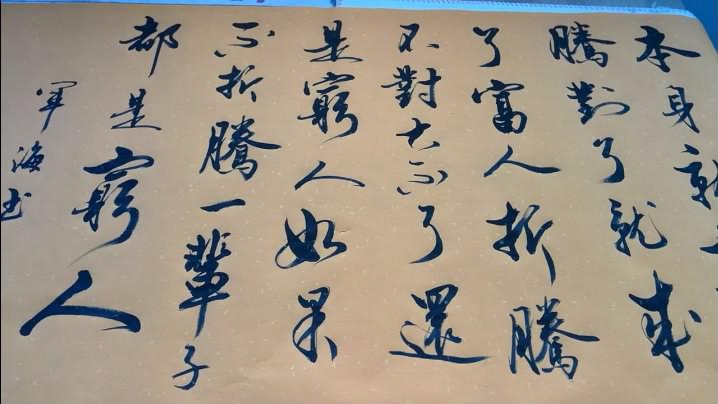 本身就
騰對了就成
了富人折騰
不對大不了還
是窮人如果
不折騰一輩子
都是窮人
軍海书